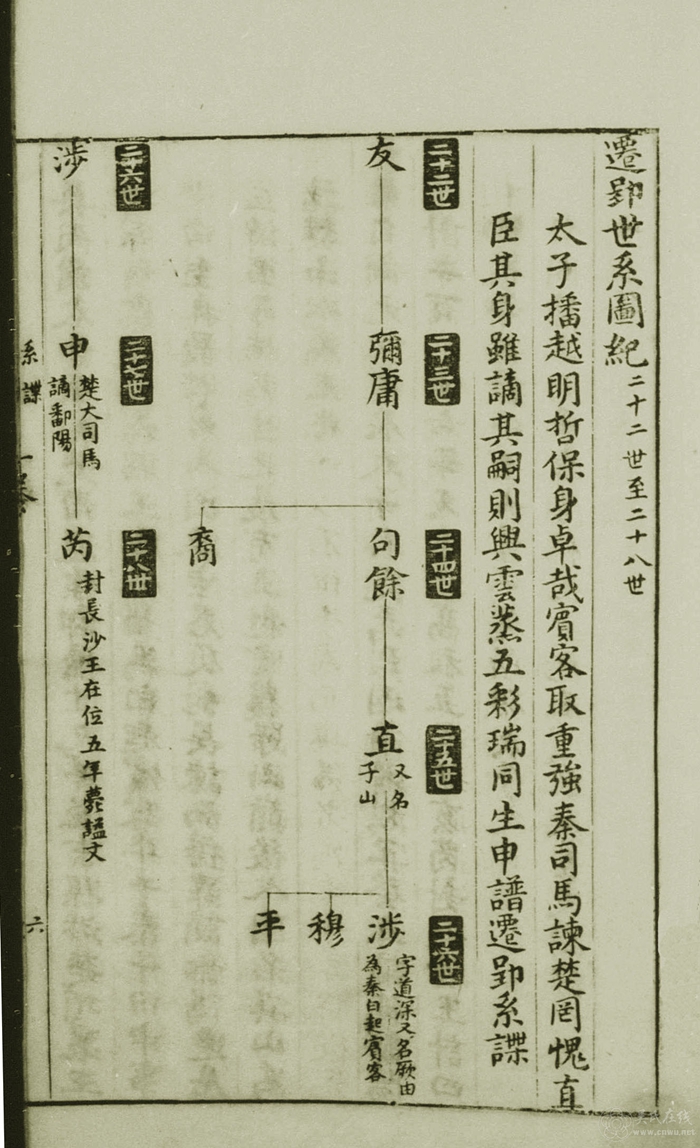 遷郢世系圖紀 二十二世至二十八世
太子播越明哲保身卓哉賓客取重強秦司馬諫楚罔愧直
臣其身雖謫其嗣則興雲蒸五彩瑞同生申譜遷郢系諜
二十二世
友
二十三世
彌庸
二十四世
句餘
裔
二十五世
直 又名子山
二十六世
涉 字道深又名厥由為秦白起賓客
穆
平
二十六世
涉
二十七世
申 楚大司馬謫鄱陽
二十八世
芮 封長沙王在位五年薨謚文
系諜
六
www.cnwu.net